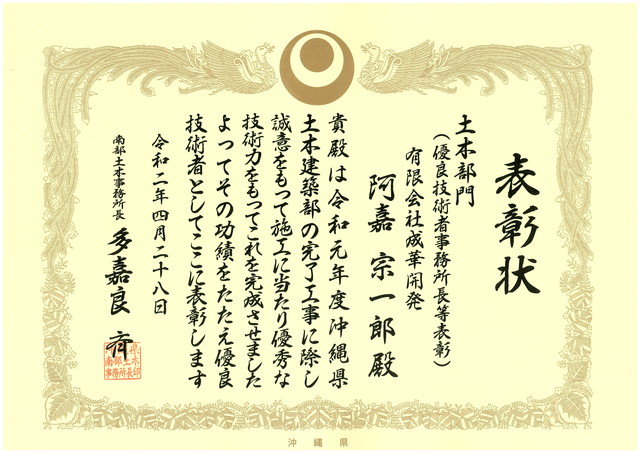 表彰状
土木部門
(優良技術者事務所長等表彰)
有限会社成華開発
阿嘉 宗一郎 殿
貴殿は令和元年度沖縄県
土木建築部の完了工事に際し
誠意をもって施工に当たり優秀な
技術力をもってこれを完成させました
よってその功績をたたえ優良
技術者としてここに表彰します
令和二年四月二十八日
南部土木事務所長 多嘉良 斉
沖縄県